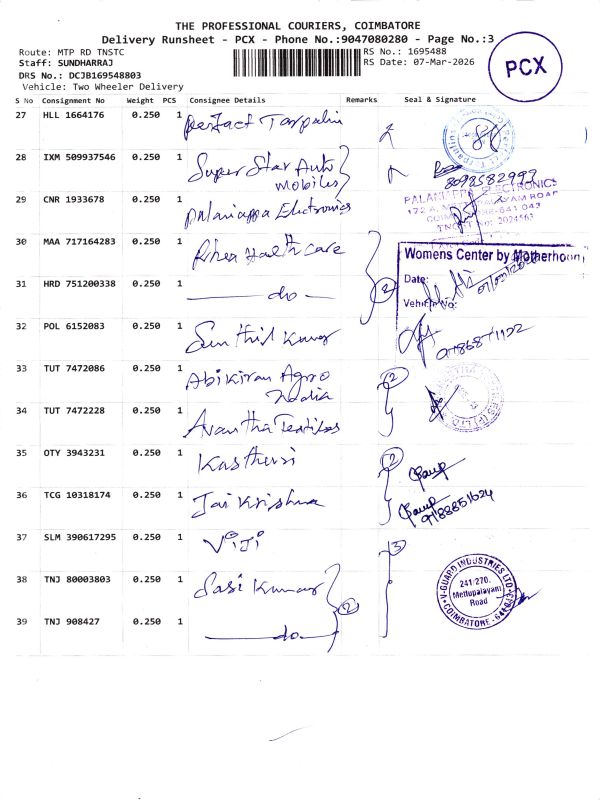 THE PROFESSIONAL COURIERS, COIMBATORE
Delivery Runsheet - PCX - Phone No.:9047080280 - Page No.:3
Route: MTP RD TNSTC
RS No.: 1695488
Staff: SUNDHARRAJ
RS Date: 07-Mar-2026
DRS No.: DCJB169548803
Vehicle: Two Wheeler Delivery
PCX
S No Consignment No Weight PCS Consignee Details Remarks Seal & Signature
27 HLL 1664176 0.250 1 perfact Tarpulin
28 IXM 509937546 0.250 1 Super Star Auto
Mobiles
8098582993
29 CNR 1933678 0.250 1 palaniappa Electronics
PALANIAPPA ELECTRONICS
30 MAA 717164283 0.250 1 Rhea Health care
Womens Center by Motherhood
Date:
Vehicle No:
31 HRD 751200338 0.250 1 do 2
32 POL 6152083 0.250 1 Senthil Kumar
33 TUT 7472086 0.250 1 Abikiran Agro
India
2
34 TUT 7472228 0.250 1 Avantha Textiles
35 OTY 3943231 0.250 1 Kasthuri 2
36 TCG 10318174 0.250 1 Jai Krishna
37 SLM 390617295 0.250 1 Viji 3
38 TNJ 80003803 0.250 1 Sasi Kumar 2
V-GUARD INDUSTRIES LTD
241/270.
Mettupalayam
Road
COIMBATORE
39 TNJ 908427 0.250 1 do